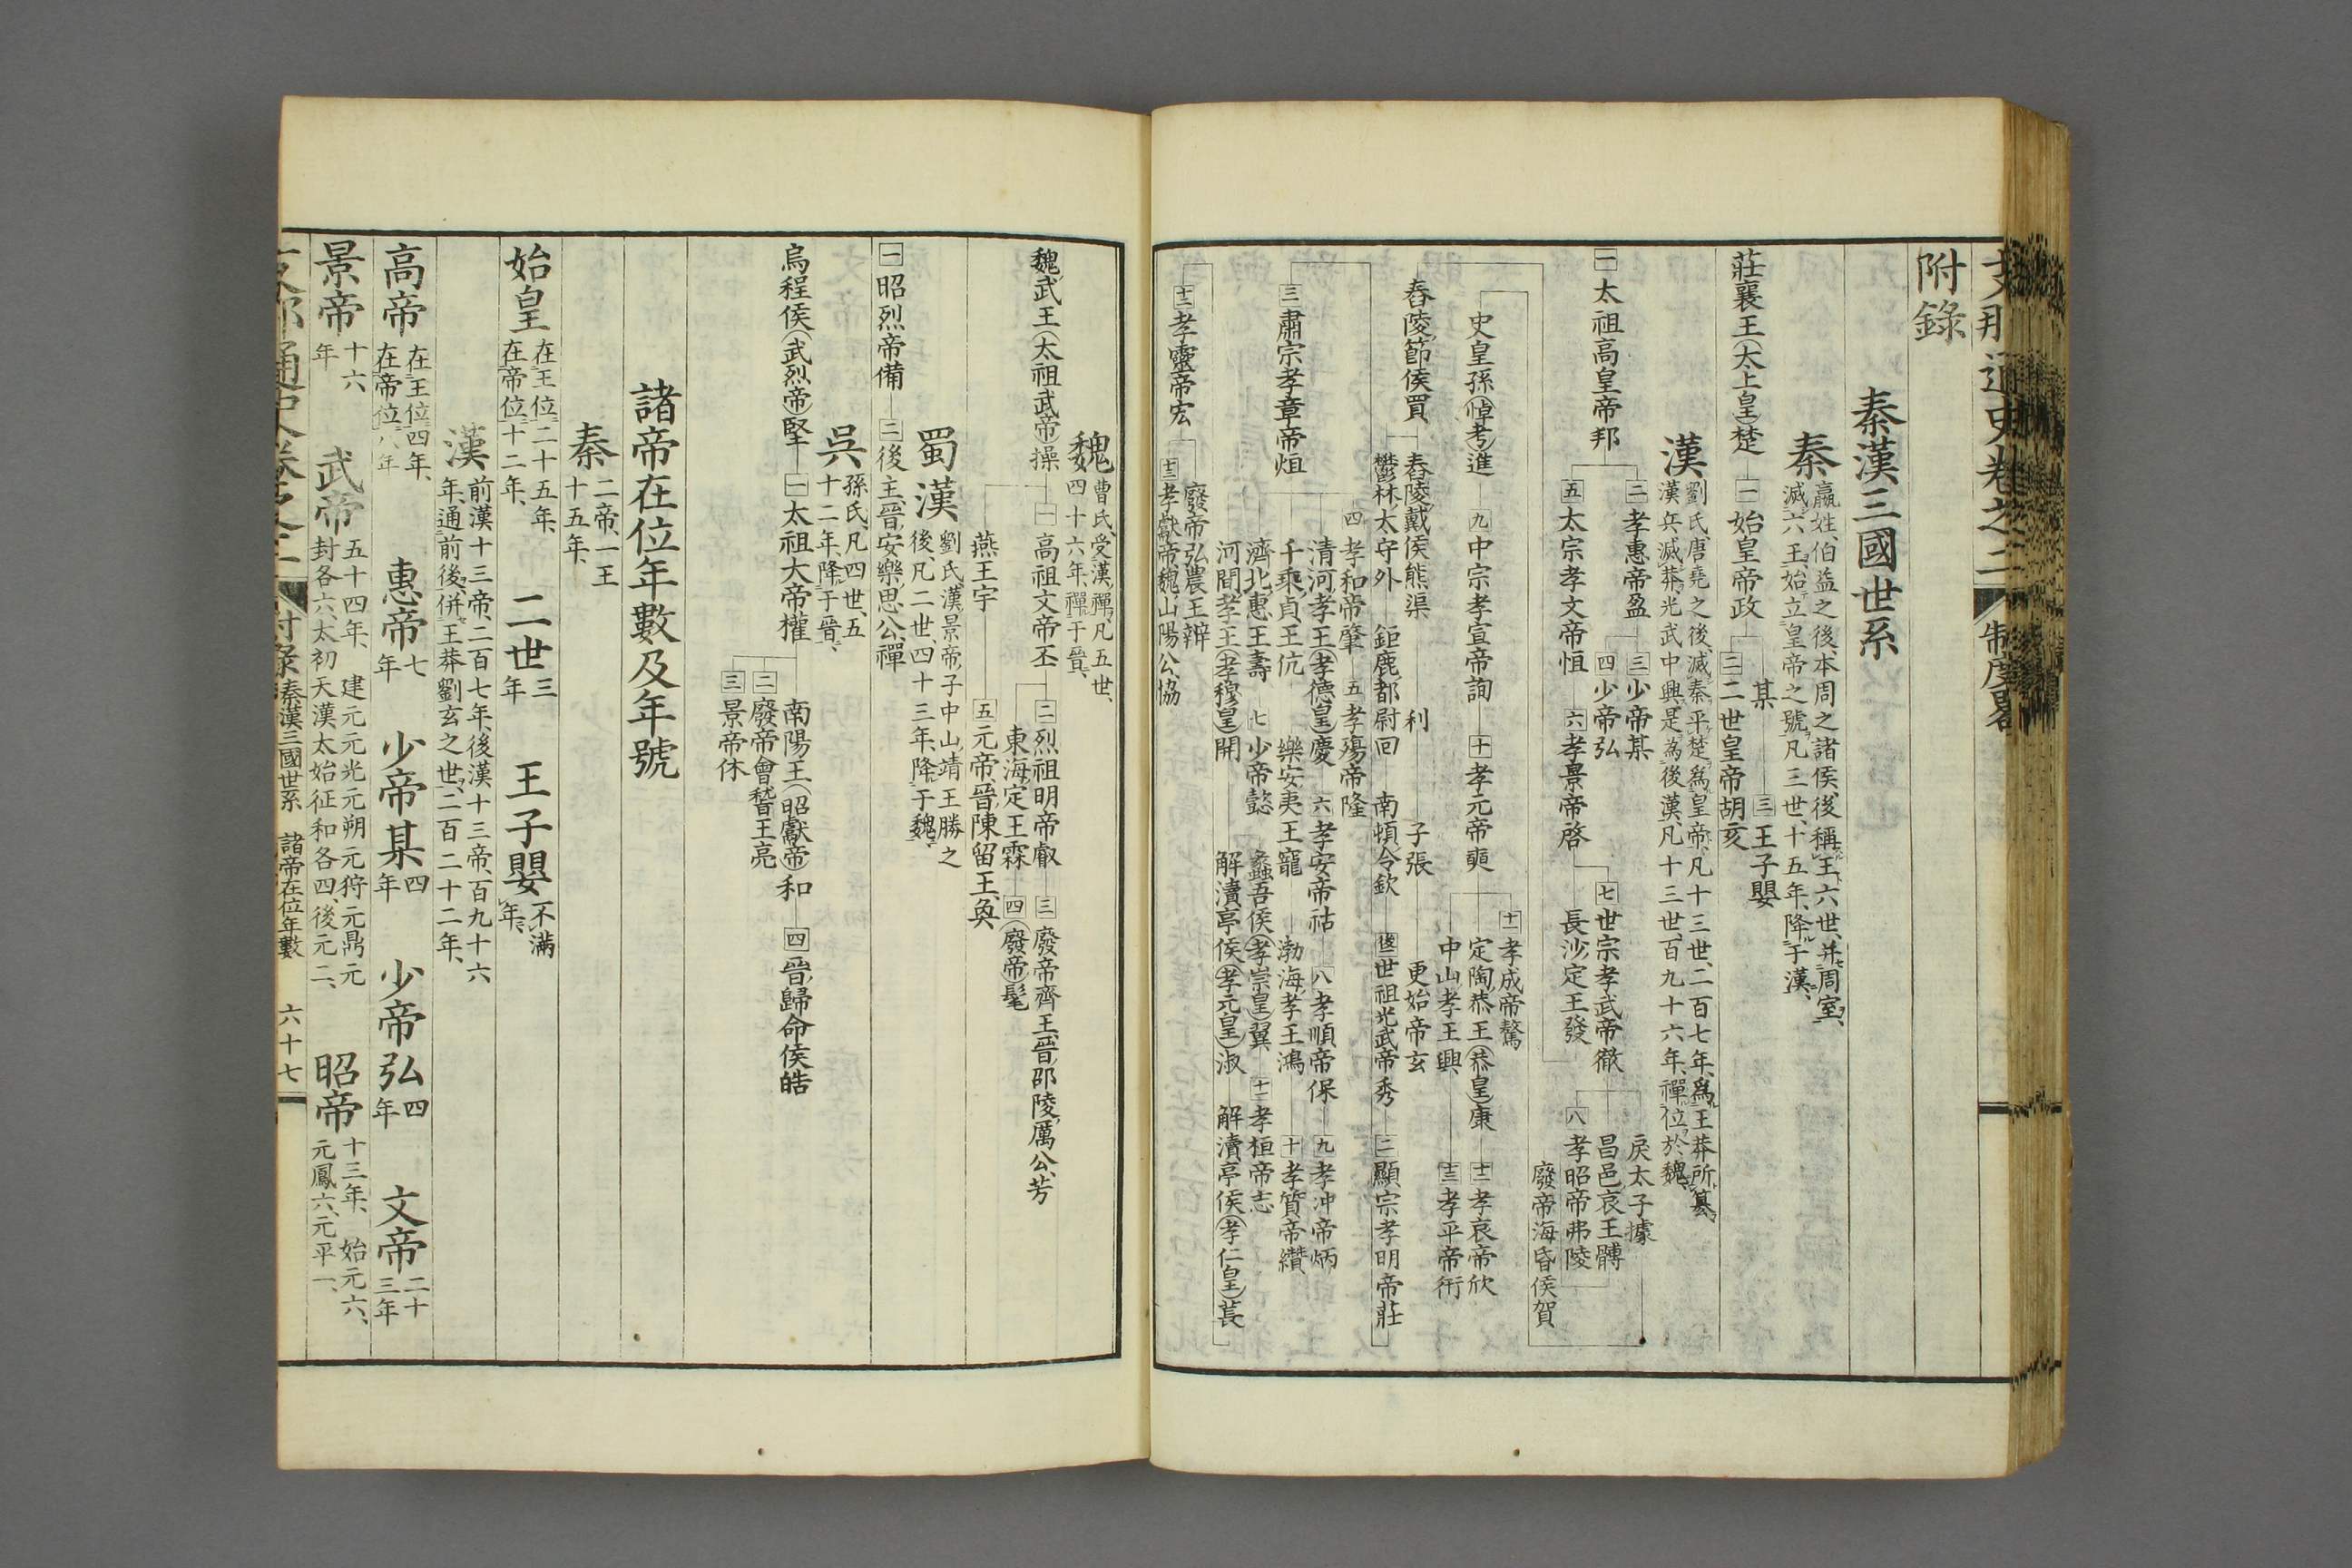 支那通史卷之二 制度畧
附錄
秦漢三國世系
秦 嬴姓、伯益之後、本周之諸侯、後稱王六世、并周室、
滅六王、始立皇帝之號、凡三世、十五年、降于漢、
莊襄王(太上皇)楚 一始皇帝政 某 三王子嬰
二二世皇帝胡亥
漢 劉氏、唐堯之後、滅秦平楚爲皇帝、凡十三世、二百七年、爲王莽所簒、
漢兵滅莽、光武中興、是爲後漢、凡十三世、百九十六年、禪位於魏、
一太祖高皇帝邦 二孝惠帝盈 三少帝某
四少帝弘
五太宗孝文帝恒 六孝景帝啓 七世宗孝武帝徹 戾太子據
長沙定王發 昌邑哀王髆
八孝昭帝弗陵
廢帝海昏侯賀
史皇孫(悼考)進 九中宗孝宣帝詢 十孝元帝奭 十一孝成帝驁
定陶恭王(恭皇)康 十二孝哀帝欣
中山孝王興 十三孝平帝衎
舂陵節侯買 舂陵戴侯熊渠 利 子張 更始帝玄
鬱林太守外 鉅鹿都尉回 南頓令欽 後一世祖光武帝秀 二顯宗孝明帝莊
三肅宗孝章帝炟 四孝和帝肇 五孝殤帝隆
清河孝王(孝德皇)慶 六孝安帝祜 八孝順帝保 九孝沖帝炳
千乘貞王伉 樂安夷王寵 渤海孝王鴻 十孝質帝纘
濟北惠王壽 七少帝懿
河間孝王(孝穆皇)開 蠡吾侯(孝崇皇)翼 十一孝桓帝志
解瀆亭侯(孝元皇)淑 解瀆亭侯(孝仁皇)萇
十二孝靈帝宏 廢帝弘農王辯
十三孝獻帝魏山陽公協
魏 曹氏、受漢禪、凡五世、
四十六年、禪于晉、
魏武王(太祖武帝)操 一高祖文帝丕 二烈祖明帝叡 三廢帝齊王、晉邵陵厲公、芳
東海定王霖 四(廢帝)髦
燕王宇 五元帝、晉陳留王、奐
蜀漢 劉氏、漢景帝子中山靖王勝之
後、凡二世、四十三年、降于魏、
一昭烈帝備 二後主、晉安樂思公、禪
吳 孫氏、凡四世、五
十二年、降于晉、
烏程侯(武烈帝)堅 一太祖大帝權 南陽王(昭獻帝)和 四晉歸命侯皓
二廢帝會稽王亮
三景帝休
諸帝在位年數及年號
秦 二帝、一王
十五年、
始皇 在王位二十五年、
在帝位十二年、 二世 三年 王子嬰 不滿年、
漢 前漢十三帝、二百七年、後漢十三帝、百九十六
年、通前後、併王莽劉玄之世、二百二十二年、
高帝 在王位四年、
在帝位八年 惠帝 七年 少帝某 四年 少帝弘 四年 文帝 二十三年
景帝 十六年 武帝 五十四年、 建元元光元朔元狩元鼎元
封各六、太初天漢太始征和各四、後元二、 昭帝 十三年、 始元六、
元鳳六、元平一、
支那通史卷之二 附錄 秦漢三國世系 諸帝在位年數 六十七